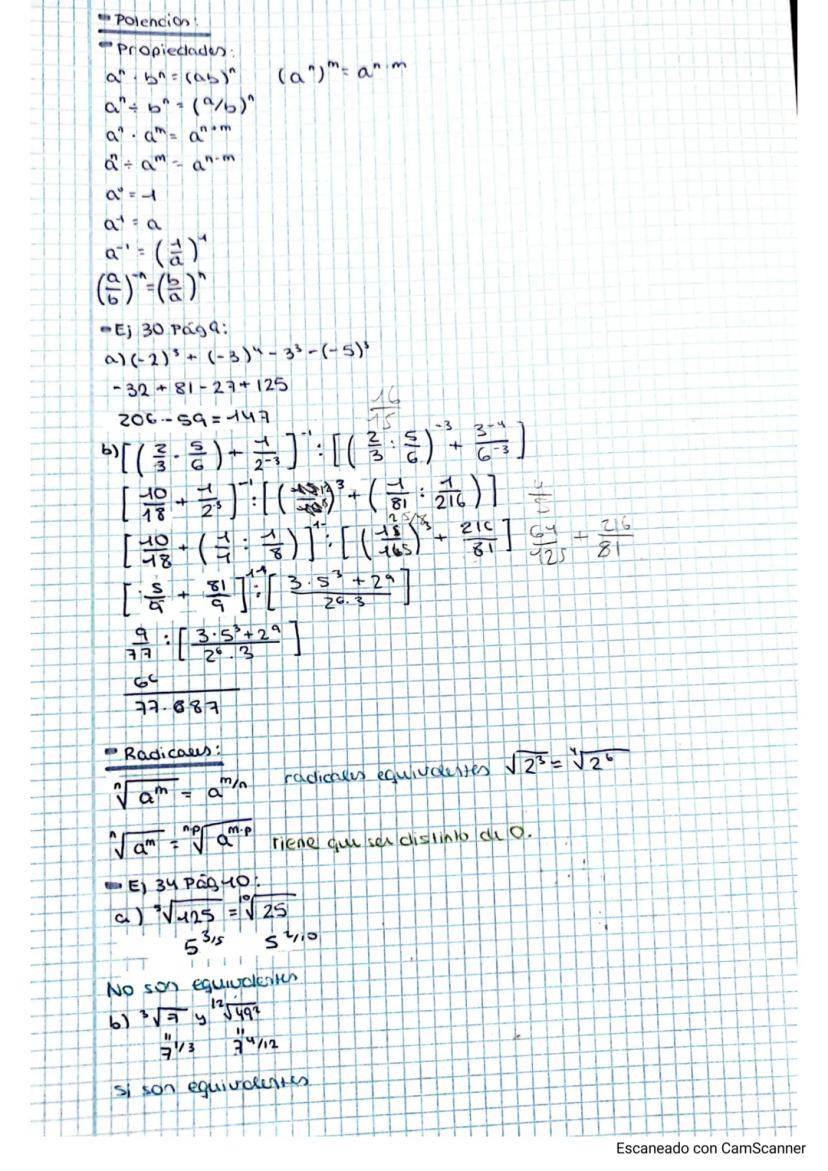 Potencias:
Propiedades:
aⁿ · bⁿ = (ab)ⁿ (aⁿ)ᵐ = aⁿ·ᵐ
aⁿ ÷ bⁿ = (a/b)ⁿ
aⁿ · aᵐ = aⁿ⁺ᵐ
aⁿ ÷ aᵐ = aⁿ⁻ᵐ
a⁰ = 1
a¹ = a
a⁻¹ = (1/a)¹
(a/b)⁻ⁿ = (b/a)ⁿ
Ej 30 Pág 9:
a) (-2)⁵ + (-3)⁴ - 3³ - (-5)³
-32 + 81 - 27 + 125
206 - 59 = 147
16/15
b) [(2/3 · 5/6) + 1/2⁻³]⁻¹ : [(2/3 : 5/6)⁻³ + 3⁻⁴/6⁻³]
[10/18 + 1/2³]⁻¹ : [( )³ + (1/81 : 1/216)] 4/5
[10/18 + (1/1 : 1/8)]¹⁻ : [( )³ + 216/81] 64/125 + 216/81
[5/9 + 81/9]⁻¹ : [3·5³ + 2⁹/26·3]
9/77 : [3·5³ + 2⁹/2⁶·3]
/77·887
Radicales:
ⁿ√aᵐ = a^m/n radicales equivalentes √2³ = ⁴√2⁶
ⁿ√aᵐ = ⁿᵖ√aᵐ·ᵖ tiene que ser distinto de 0.
Ej 34 Pág 10:
a) ⁵√125 = ¹⁰√25
5^3/5 5^2/10
No son equivalentes
b) ³√7 y ¹²√49²
" "
7^1/3 7^4/12
si son equivalentes
Escaneado con CamScanner